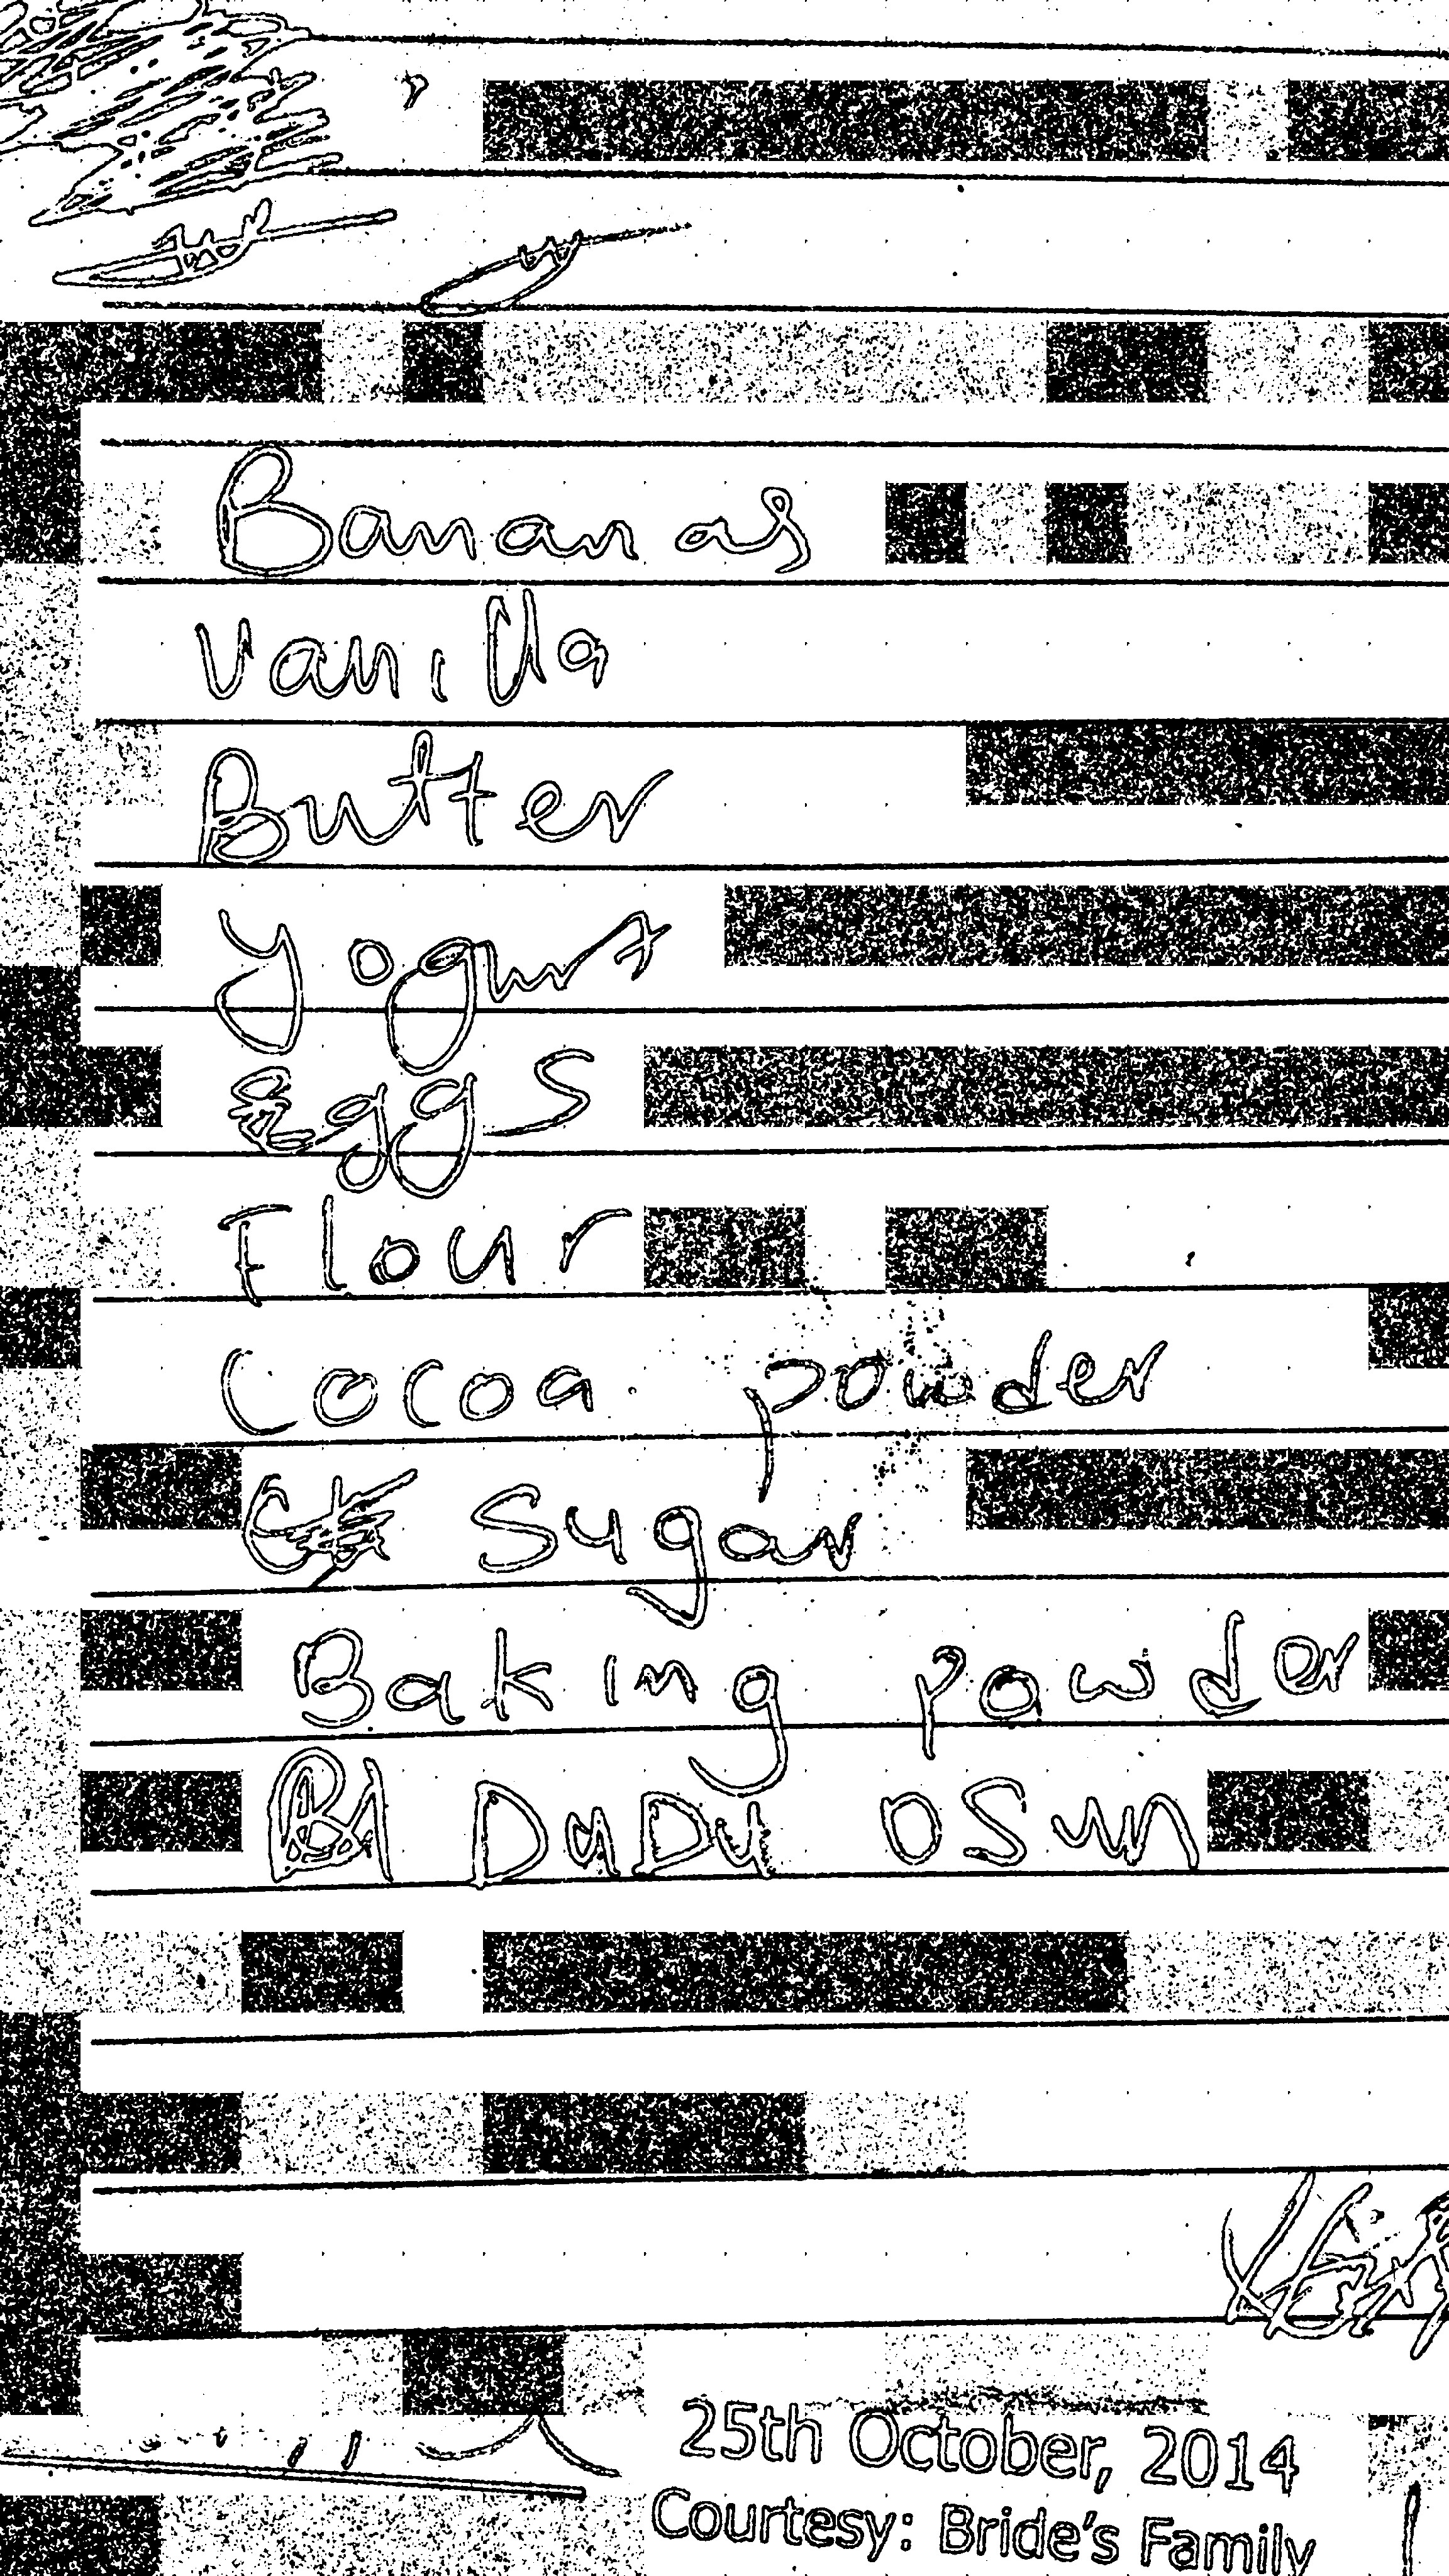 Bananas
Vanilla
Butter
Yogurt
eggs
Flour
Cocoa powder
Sugar
Baking powder
DUDU OSUN
25th October, 2014
Courtesy: Bride's Family